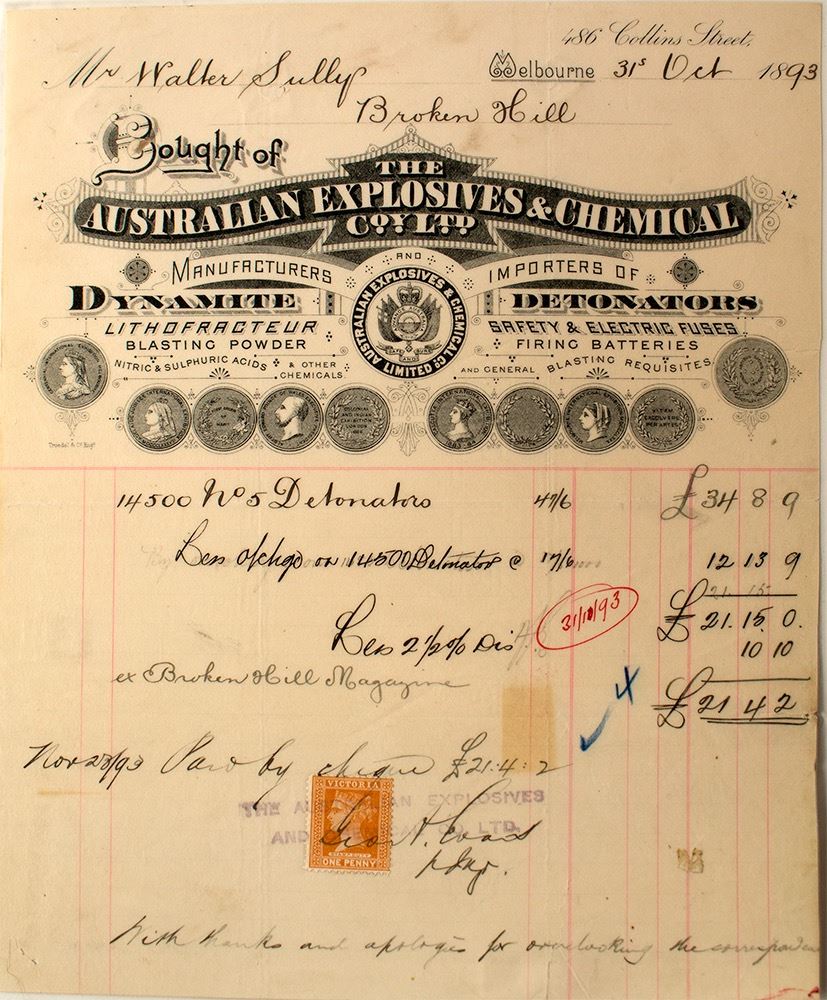 486 Collins Street,
Melbourne 31s Oct 1893
Mr Walter Sully
Broken Hill
Bought of
THE
AUSTRALIAN EXPLOSIVES & CHEMICAL
COY LTD
MANUFACTURERS AND IMPORTERS OF
DYNAMITE DETONATORS
LITHOFRACTEUR SAFETY & ELECTRIC FUSES
BLASTING POWDER FIRING BATTERIES
NITRIC & SULPHURIC ACIDS & OTHER CHEMICALS. AND GENERAL BLASTING REQUISITES
AUSTRALIAN EXPLOSIVES & CHEMICAL CO LIMITED
Troedel & Co Engs
14500 No 5 Detonators 47/6 £34 8 9
Less on 14500 Detonators @ 17/6 12 13 9
£21. 15. 0.
Less 2 1/2 % Dis 31/10/93 10 10
ex Broken Hill Magazine £21 4 2
Nov 28/93 Paid by cheque £21:4:2
THE AN EXPLOSIVES
AND CO. LTD.
VICTORIA
STAMP DUTY
ONE PENNY
Evans
With thanks and apologies for overlooking the